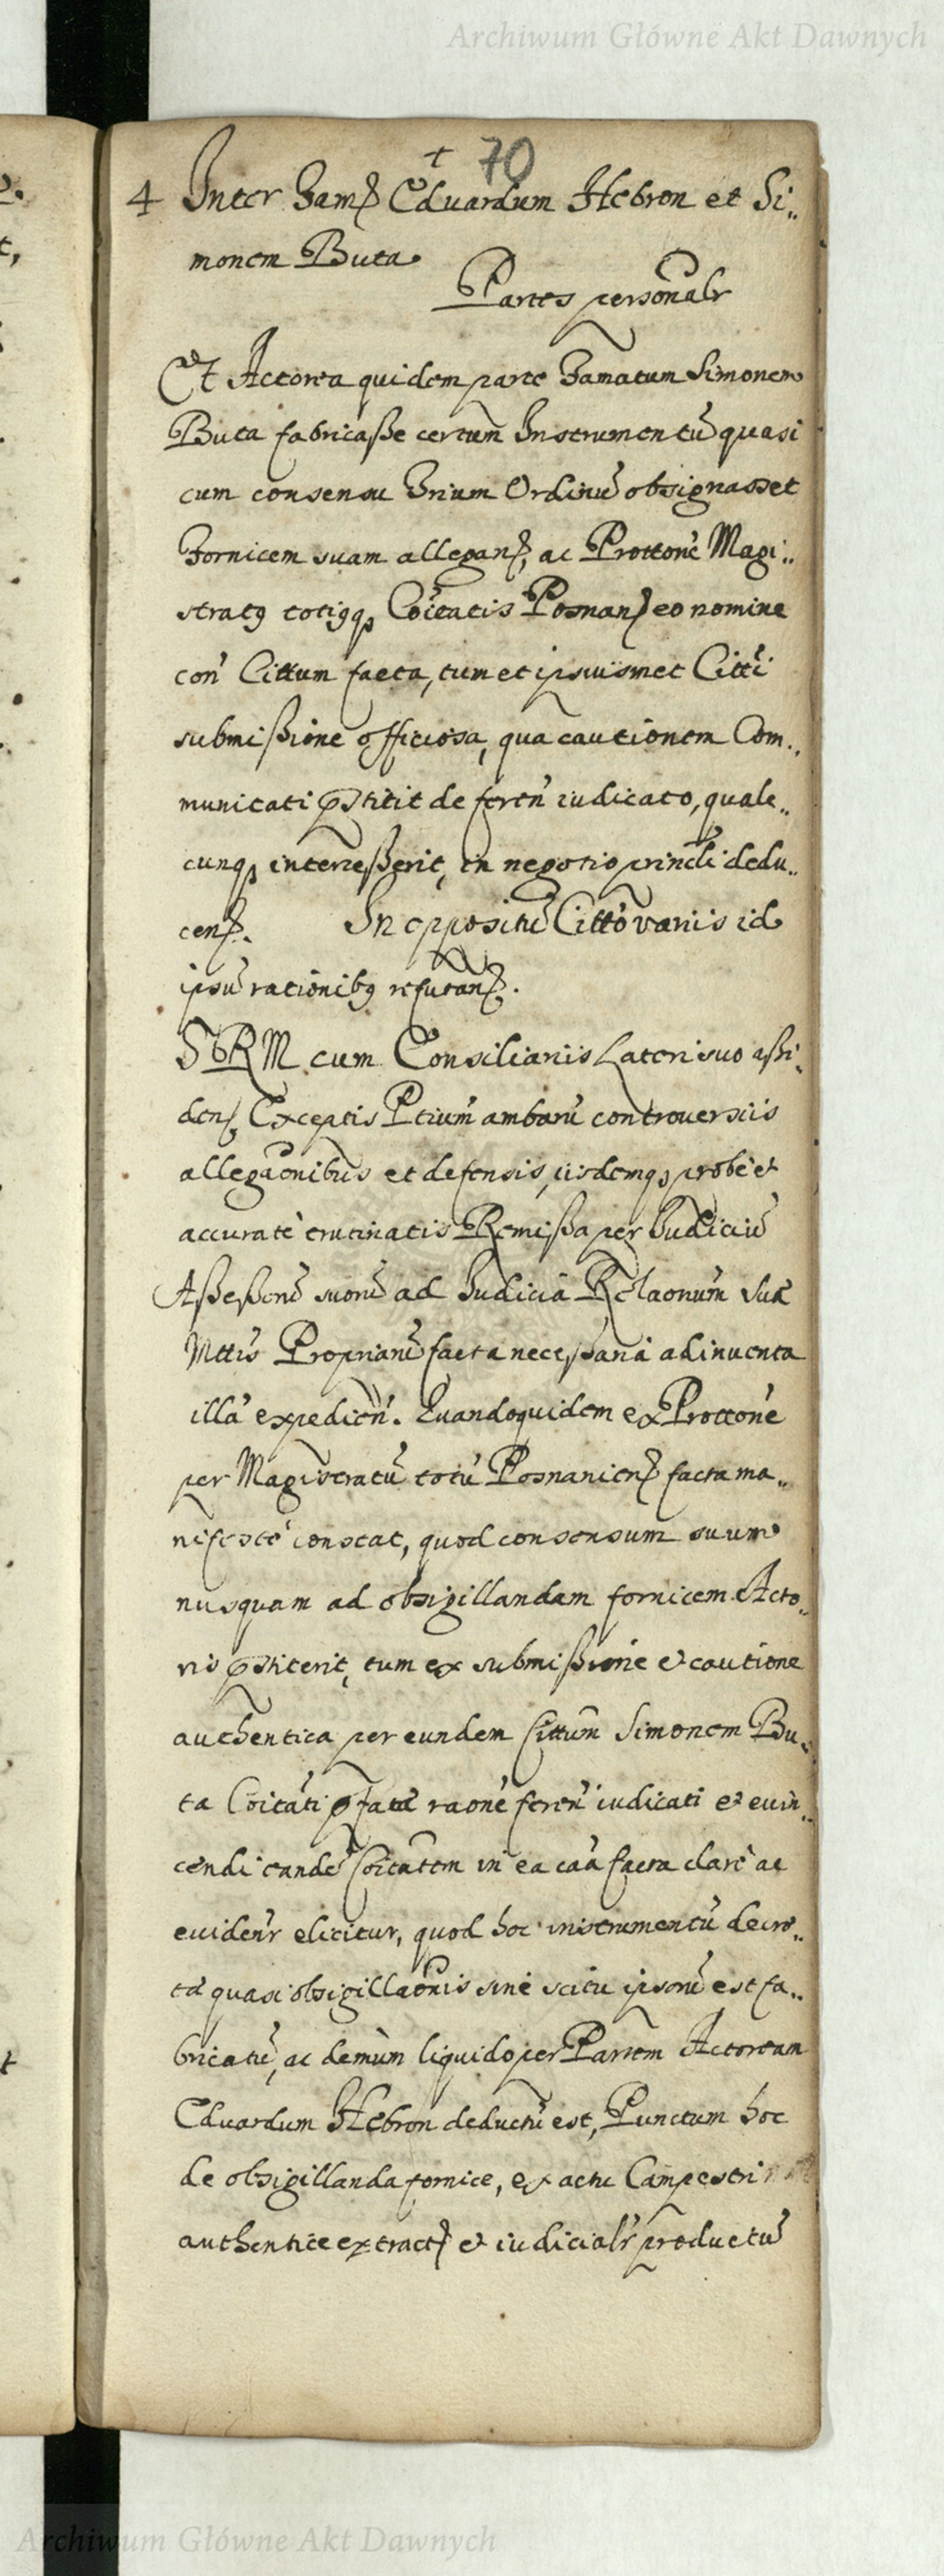 Archiwum Główne Akt Dawnych
+ 70
4 Inter Famꝭ Eduardum Hebron et Si„
monem Buta
Partes personalr
Et Actorea quidem parte Famatum Simonem
Buta fabricaße certum Instrumentū quasi
cum consensu Trium Ordinū obsignasset
Fornicem suam alleganꝭ, ac Prottone Magi„
stratꝯ totiꝯqꝫ Coitatis Posnanꝭ eo nomine
con Cittum facta, tum et ipsiusmet Citti
submißione officiosa, qua cautionem Com„
municati p̄stitit de feren iudicato, quale„
cunqꝫ interreßerit, in negotio princli dedu„
cenꝭ. In oppositū Citto varijs id
ipsū rationibꝯ refutanꝭ.
S R M cum Consiliarijs Lateri suo aßi„
denꝭ Exceptis Ptium ambarū controuersijs
allegaonibus et defensis, ijsdemqꝫ probe et
accurate trutinatis Remißa per Iudiciū
Aßeßorū suorū ad Iudicia Relaonum Suæ
Mttis Propriarū facta neceßaria adinuenta
illa expedien. Quandoquidem ex Prottone
per Magistratū totū Posnaniensꝭ facta ma„
nifeste constat, quod consensum suum
nusquam ad obsigillandam fornicem Acto„
ris p̄stiterit, tum ex submißione et cautione
authentica per eundem Cittum Simonem Bu„
ta Coitati p̄fatæ raone feren iudicati et euin„
cendi eandē Coitatem in ea caa facta clare ac
euidenr elicitur, quod hoc instrumentū decre„
ta quasi obsigillaonis sine scitu ipsorū est fa„
bricatū, ac demum liquido per Partem Actoream
Eduardum Hebron deductū est, Punctum hoc
de obsigillanda fornice, ex actu Campestri
authentice extractꝭ et iudicialr productū
Archiwum Główne Akt Dawnych